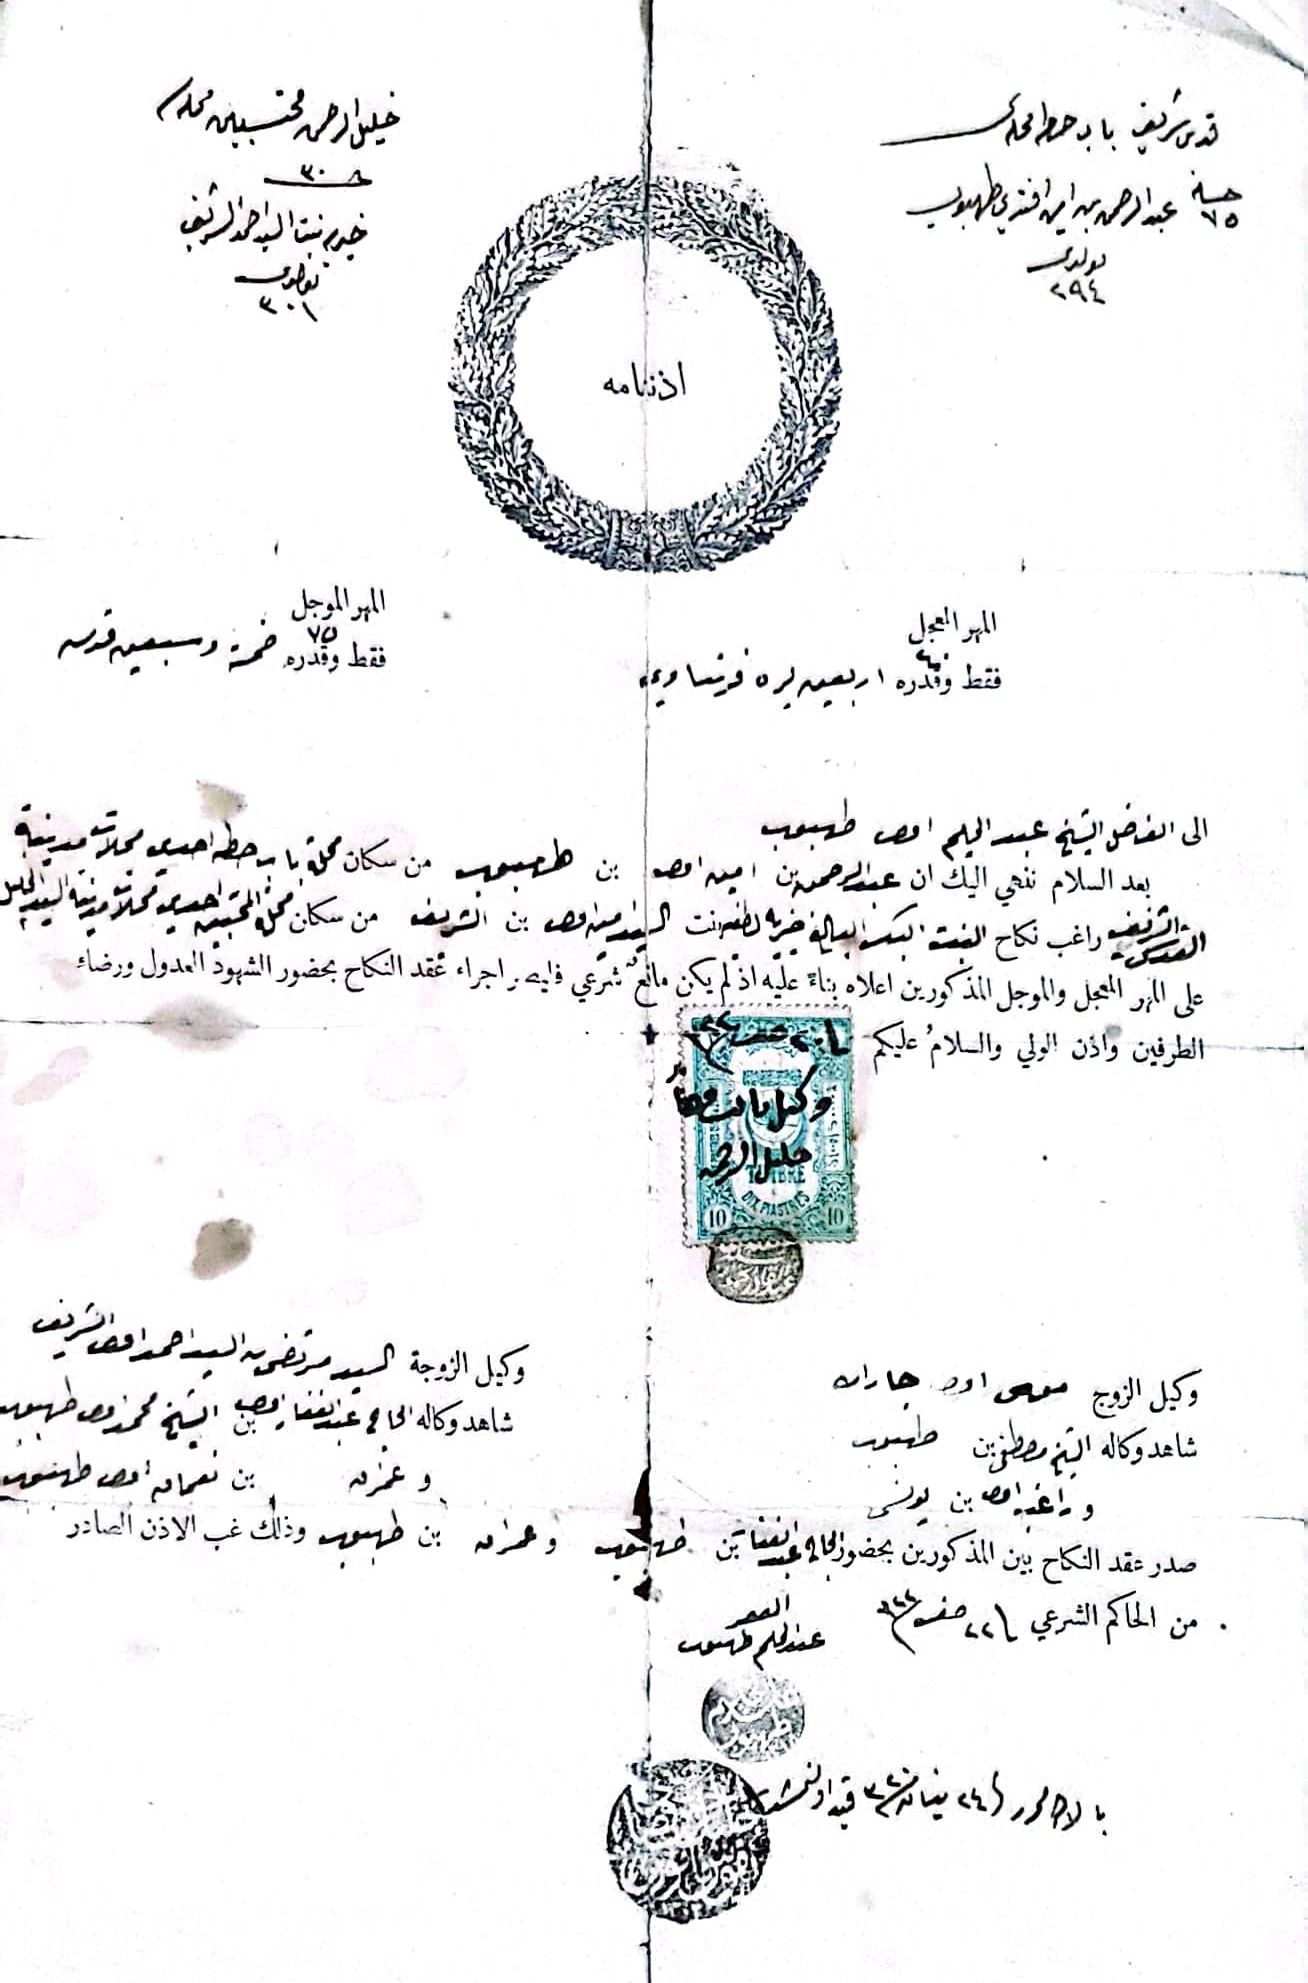 قدس شريف باب حطه محله سى
خانه ٧٥ عبد الرحمن بن امين افندي طهبوب
تولدى
٢٩٤
خليل الرحمن محتسبين محله
٣٠٨
خيريه بنت السيد احمد الشريف
تولدى
٣٠١
اذننامه
المهر المعجل
٤٠
فقط وقدره اربعين ليره فرنساويه
المهر الموجل
٧٥
فقط وقدره خمسة وسبعين قدسه
الى الفاضل الشيخ عبد الحليم افندي طهبوب
بعد السلام ننهي اليك ان عبد الرحمن بن امين افندي بن طهبوب من سكان محلة باب حطه احدى محلات مدينة
القدس الشريف راغب نكاح البنت البكر البالغ خيريه بنت السيد افندي بن الشريف من سكان محلة المحتسبين احدى محلات مدينة السيد الخليل
على المهر المعجل والموجل المذكورين اعلاه بناءً عليه اذ لم يكن مانع شرعي فابه اجراء عقد النكاح بحضور الشهود العدول ورضاء
الطرفين واذن الولي والسلام عليكم
في ٢٠ صفر ٣٢٢
وكيل نائب
خليل الرحمن
TIMBRE
DIX PIASTRES
10 10
وكيل الزوج موسى افندي
شاهد وكاله الشيخ مصطفى بن طهبوب
و راغب افندي بن يونس
وكيل الزوجة السيد مرتضى بن السيد احمد افندي الشريف
شاهد وكاله الحاج عبد الغفار افندي بن الشيخ محمد افندي طهبوب
و عمران بن نعمان افندي طهبوب
صدر عقد النكاح بين المذكورين بحضور الحاج عبد الغفار بن طهبوب و عمران بن طهبوب وذلك غب الاذن الصادر
من الحاكم الشرعي في ٢٢ صفر ٣٢٢
الفقير
عبد الحليم طهبوب
في ٢٤ نيسان ٣٢٠ قيد اولنمشدر